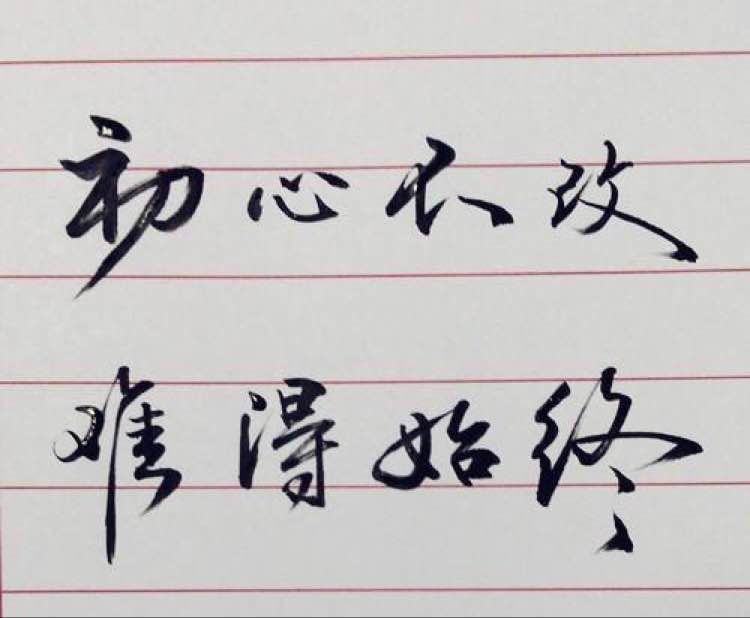 初心不改
难得始终